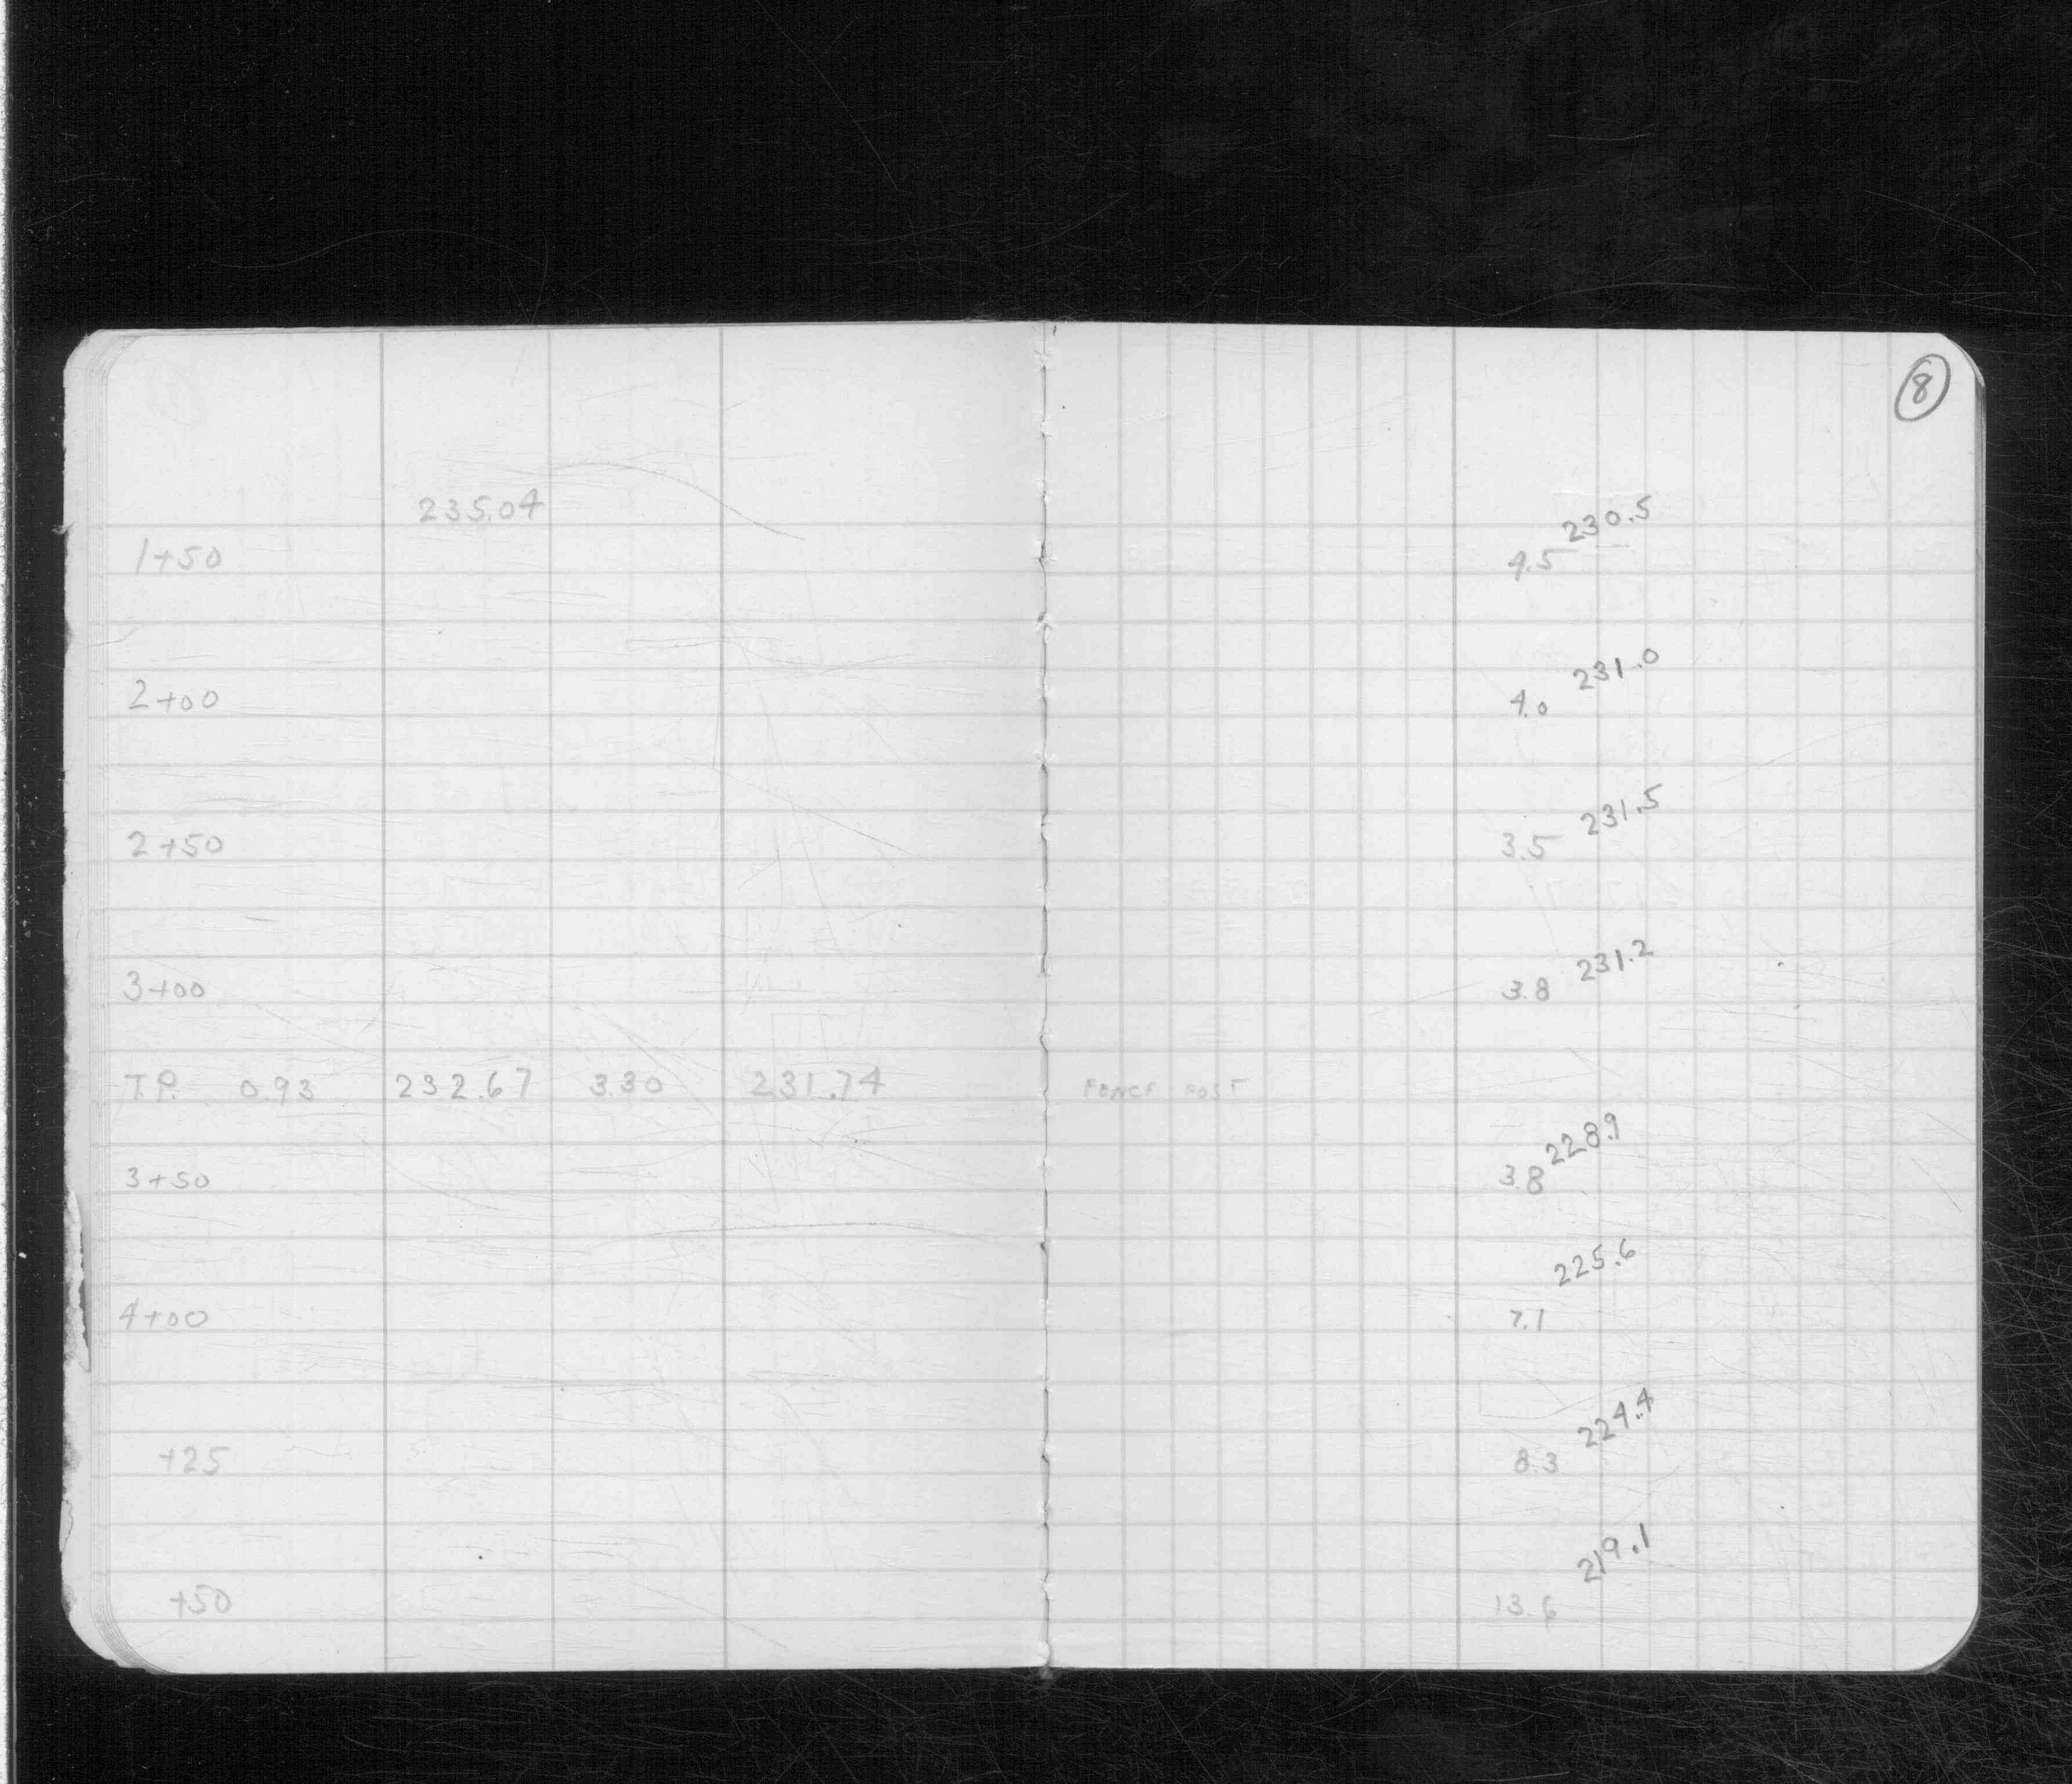 8
235.04
230.5
1+50 4.5
231.0
2+00 4.0
231.5
2+50 3.5
231.2
3+00 3.8
T.P. 0.93 232.67 3.30 231.74 FENCE POST
228.9
3+50 3.8
225.6
4+00 7.1
224.4
+25 8.3
219.1
+50 13.6